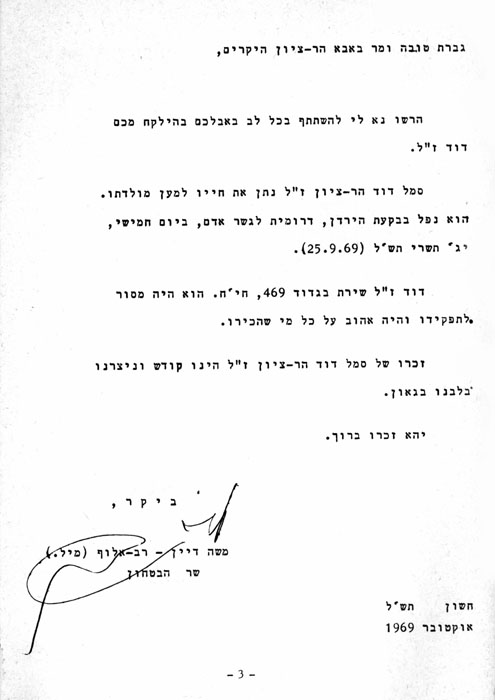 גברת טובה ומר באבא הר-ציון היקרים,
הרשו נא לי להשתתף בכל לב באבלכם בהילקח מכם
דוד ז"ל.
סמל דוד הר-ציון ז"ל נתן את חייו למען מולדתו.
הוא נפל בבקעת הירדן, דרומית לגשר אדם, ביום חמישי,
יג' תשרי תש"ל (25.9.69).
דוד ז"ל שירת בגדוד 469, חי"ח. הוא היה מסור
לתפקידו והיה אהוב על כל מי שהכירו.
זכרו של סמל דוד הר-ציון ז"ל הינו קודש וניצרנו
בלבנו בגאון.
יהא זכרו ברוך.
ביקר,
משה דיין - רב-אלוף (מיל.)
שר הבטחון
חשון תש"ל
אוקטובר 1969
- 3 -